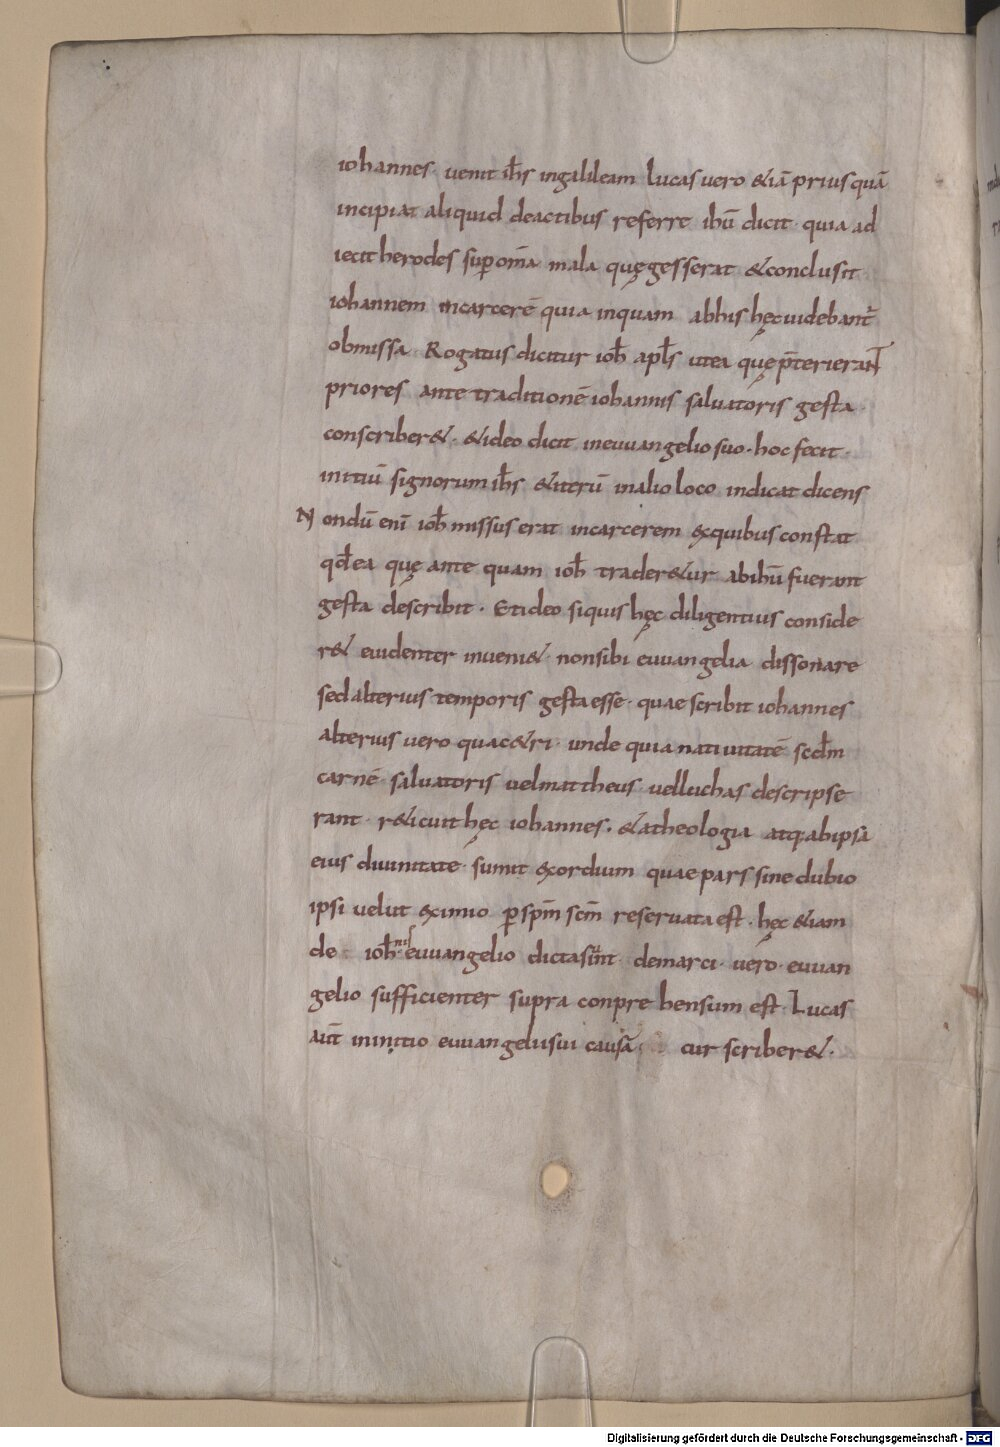 iohannes· venit ih̅s ingalileam lucas vero &iā priusquā
incipiat aliquid deactibus referre ihū dicit· quia ad
iecit herodes sup̱om̅a mala quęgesserat &conclusit·
iohannem incarcerē quia inquam abhis hęcuidebant̄
obmissa· Rogatus dicitur ioh̅ apl̅s utea quęp̅terierant
priores ante traditionē iohannis salvatoris gesta·
conscriber&· &ideo dicit ineuuangelio suo· hoc fecit·
initiū signorum ih̅s &iterū inalio loco indicat dicens
Nondū eni̅ ioh̅ missus erat incarcerem exquibus constat
qd̅ea quę ante quam ioh̅ trader&ur abihū fuerant
gesta describit· Etideo siquis hęc diligentius conside
r& euidenter inueni& nonsibi euuangelia dissonare
sed alterius temporis gesta esse· quae scribit iohannes
alterius vero quac&eri· unde quia natiuitatē scd̅m
carnē salvatoris velmattheus velluchas descripse
rant· r&icuit hęc iohannes· &atheologia atq·abipsa
eius diuinitate· sumit exordium quae pars sine dubio
ipsi velut eximio p̱ sp̅m sc̅m reseruata est· hęc &iam
de ioh̅·nis euuangelio dictasunt· demarci· vero· euuan
gelio sufficienter supra conprehensum est· Lucas
aut̅ ininitio euuangeliisui causā cur scriber&·
Digitalisierung gefördert durch die Deutsche Forschungsgemeinschaft - DFG